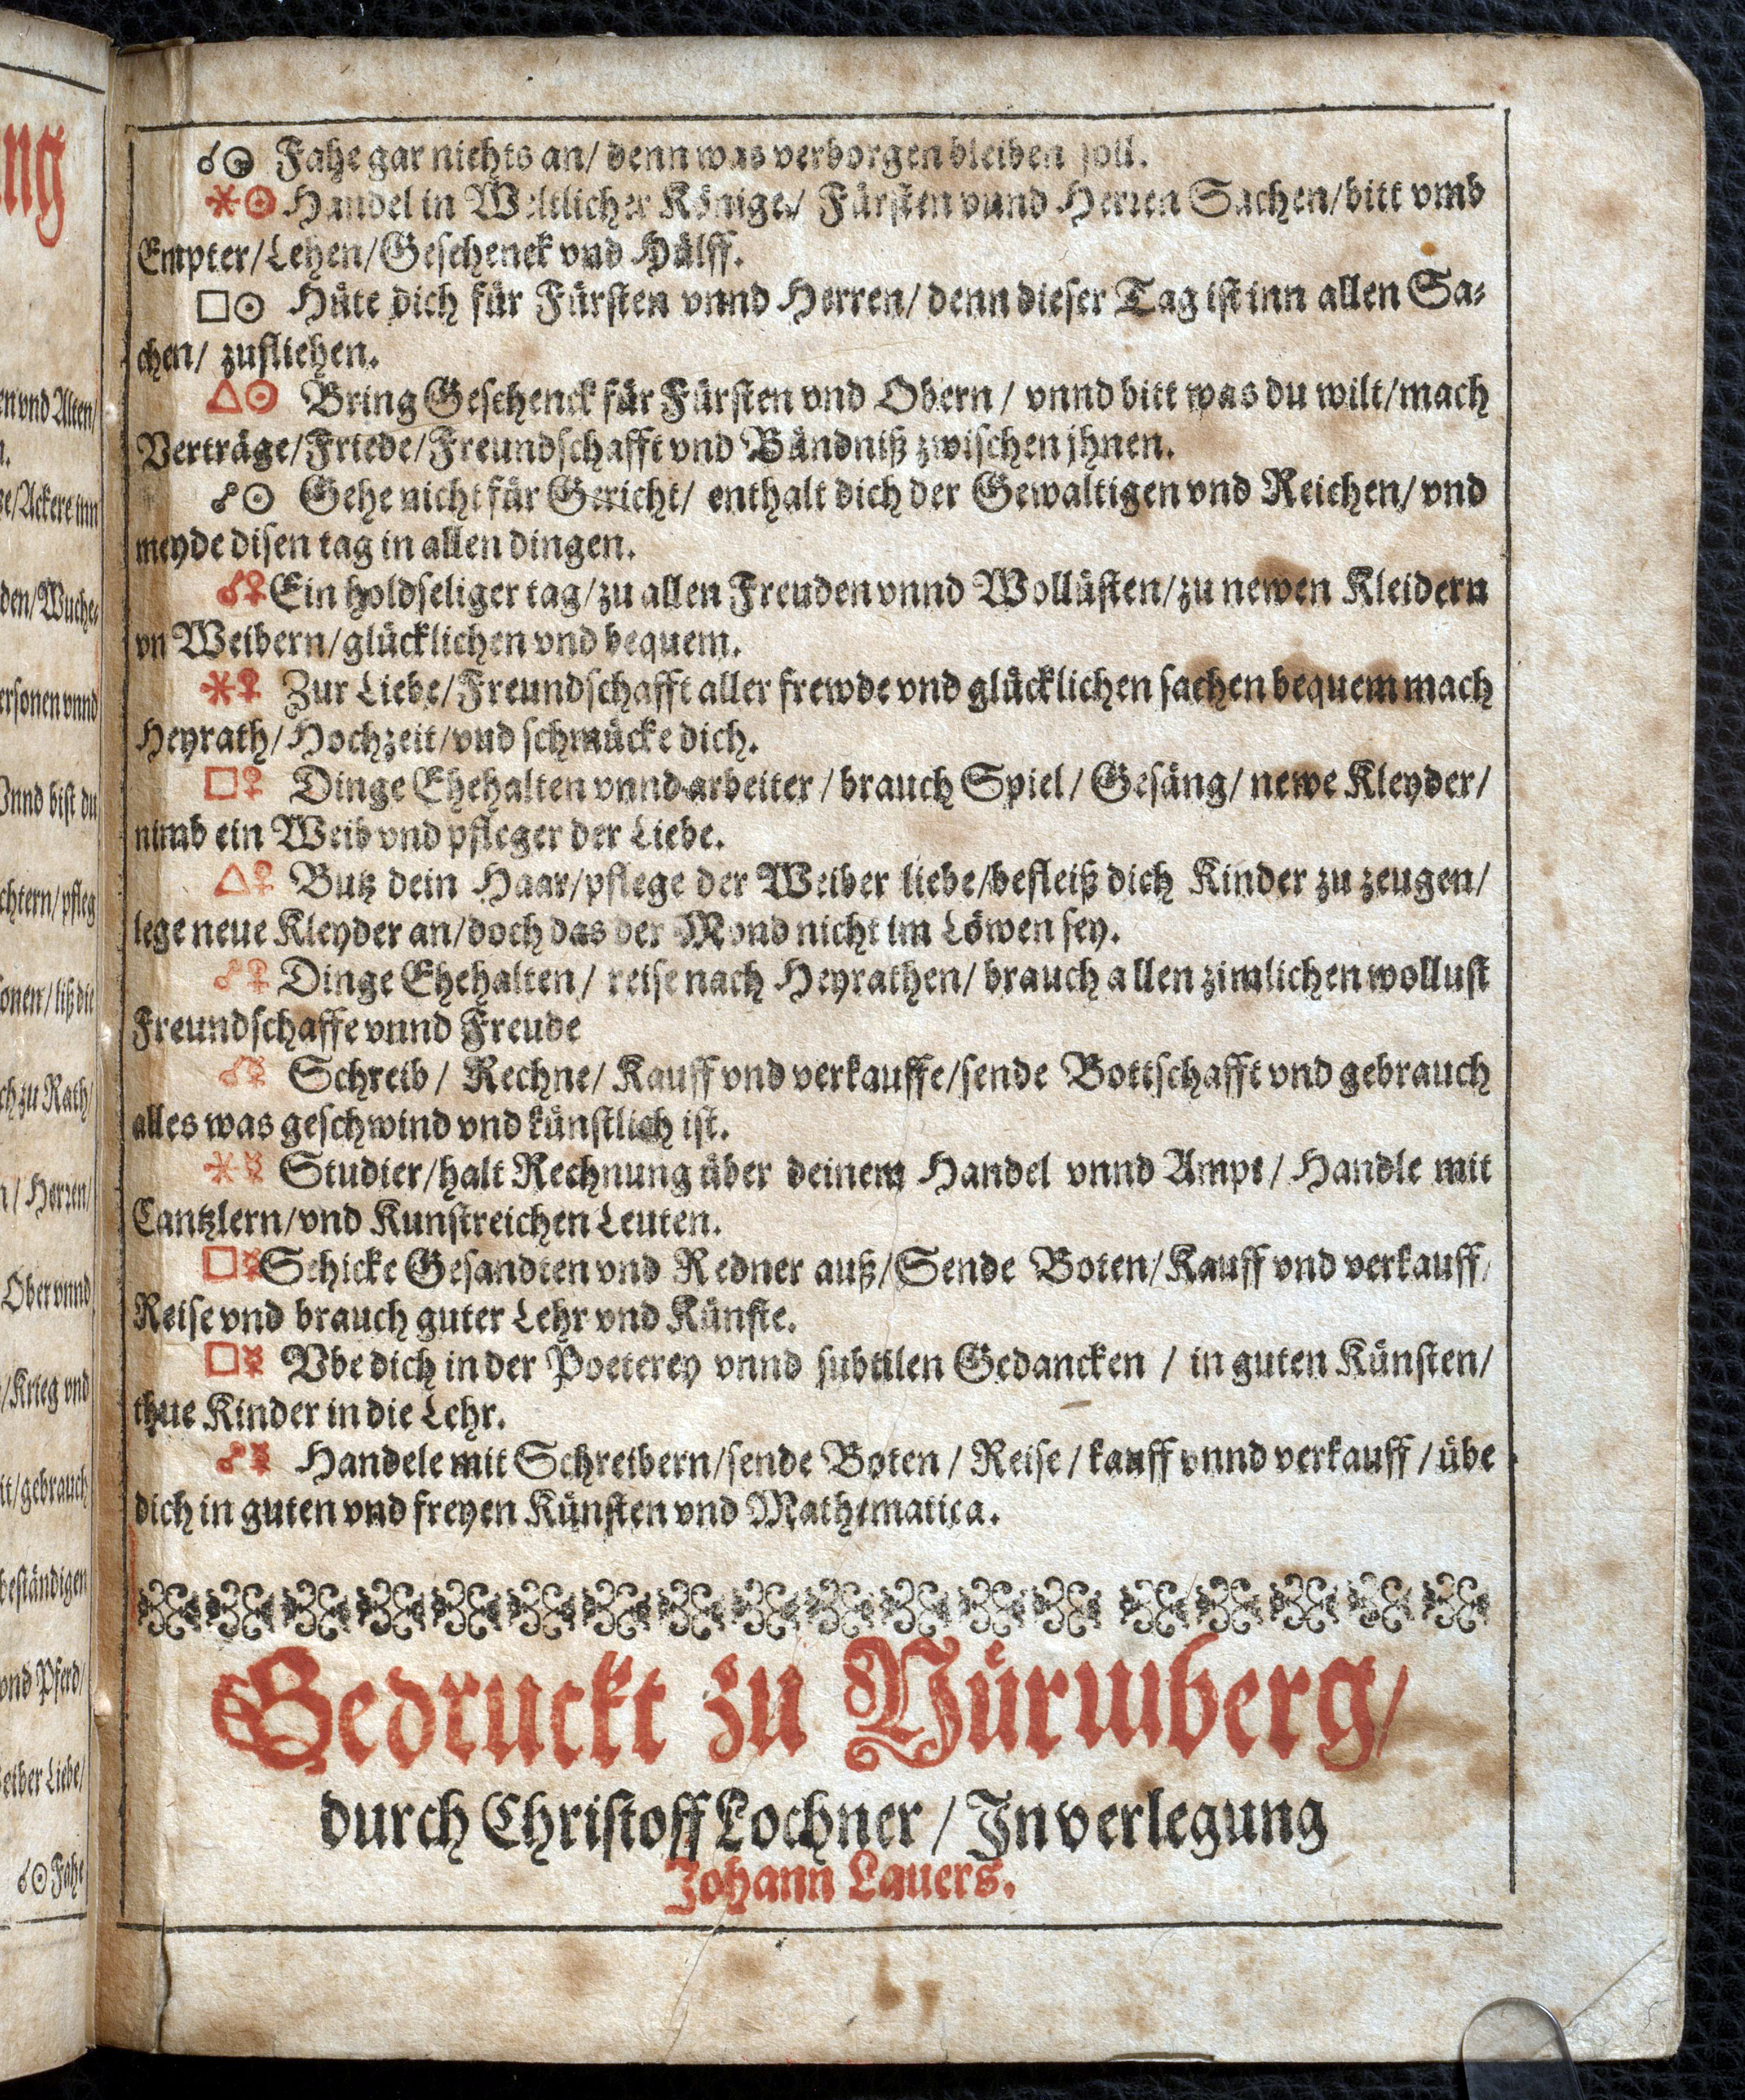 ng
en vnd Alten/
n.
ge/Ackere inn
den/Wuche⸗
ersonen vnnd
Vnnd bist du
chtern/pfleg
sonen/ liß die
ch zu Rath/
n/ Herren/
Ober vnnd
/Krieg vnd
it/gebrauch
beständigen
vnd Pferd/
Weiber Liebe/
☌☉ Fahe
☌☉ Fahe gar nichts an/ denn was verborgen bleiben soll.
⚹☉ Handel in Weltlicher Könige/ Fürsten vnnd Herren Sachen/bitt vmb
Empter/Lehen/Geschenck vnd Hülff.
□☉ Hüte dich für Fürsten vnnd Herren/ denn dieser Tag ist inn allen Sa⸗
chen/ zufliehen.
△☉ Bring Geschenck für Fürsten vnd Obern/ vnnd bitt was du wilt/mach
Verträge/Friede/Freundschafft vnd Bündniß zwischen jhnen.
☍☉ Gehe nicht für Gericht/ enthalt dich der Gewaltigen vnd Reichen/ vnd
meyde disen tag in allen dingen.
☌♀ Ein holdseliger tag/zu allen Freuden vnnd Wollüsten/zu newen Kleidern
vn Weibern/glücklichen vnd bequem.
⚹♀ Zur Liebe/Freundschafft aller frewde vnd glücklichen sachen bequem mach
Heyrath/Hochzeit/vnd schmücke dich.
□♀ Dinge Ehehalten vnnd arbeiter/ brauch Spiel/ Gesäng/ newe Kleyder/
nimb ein Weib vnd pfleger der Liebe.
△♀ Butz dein Haar/pflege der Weiber liebe/befleiß dich Kinder zu zeugen/
lege neue Kleyder an/doch das der Mond nicht im Löwen sey.
☍♀ Dinge Ehehalten/ reise nach Heyrathen/ brauch allen zimlichen wollust
Freundschaffe vnnd Freude
☌☿ Schreib/ Rechne/ Kauff vnd verkauffe/sende Bottschafft vnd gebrauch
alles was geschwind vnd künstlich ist.
⚹☿ Studier/halt Rechnung über deinem Handel vnnd Ampt/ Handle mit
Cantzlern/vnd Kunstreichen Leuten.
□☿ Schicke Gesandten vnd Redner auß/Sende Boten/Kauff vnd verkauff/
Reise vnd brauch guter Lehr vnd Künste.
□☿ Vbe dich in der Poeterey vnnd subtilen Gedancken/ in guten Künsten/
thue Kinder in die Lehr.
☍☿ Handele mit Schreibern/sende Boten/ Reise/ kauff vnnd verkauff/ übe
dich in guten vnd freyen Künsten vnd Mathematica.
Gedruckt zu Nürmberg/
durch Christoff Lochner/ In verlegung
Johann Lauers.